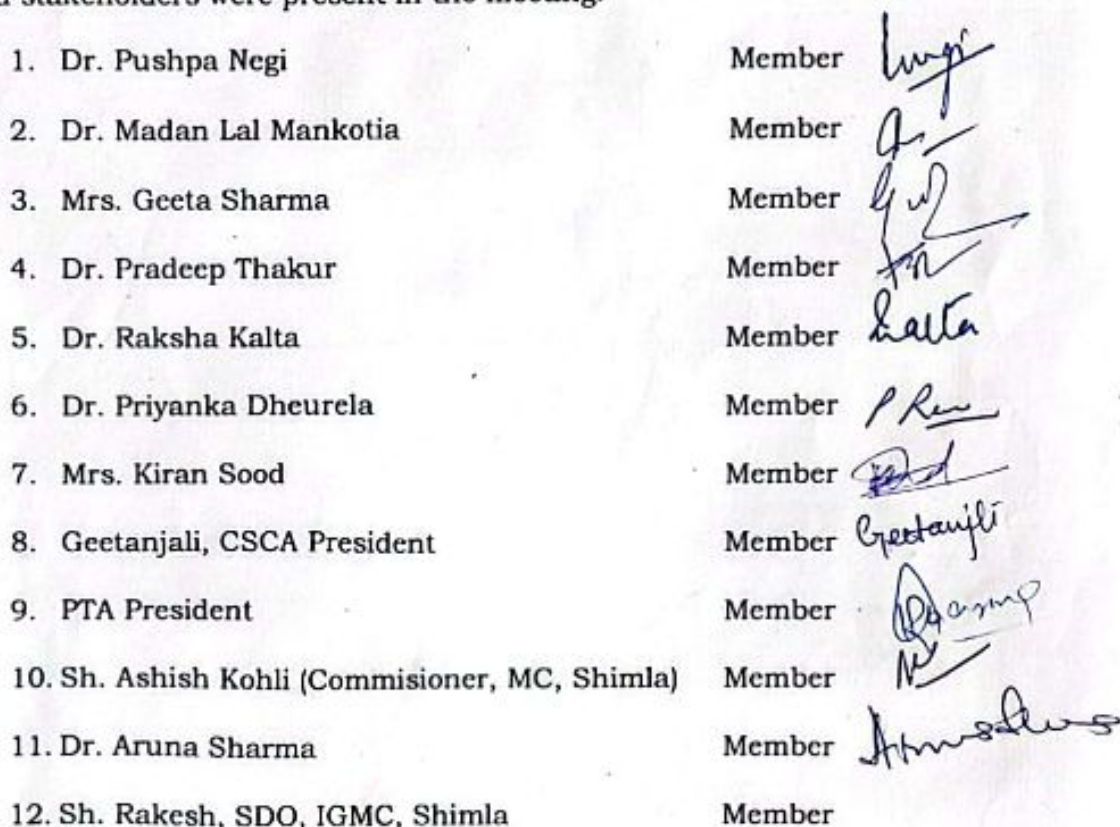 stakeholders were present in the meeting.
1. Dr. Pushpa Negi Member
2. Dr. Madan Lal Mankotia Member
3. Mrs. Geeta Sharma Member
4. Dr. Pradeep Thakur Member
5. Dr. Raksha Kalta Member Kalta
6. Dr. Priyanka Dheurela Member
7. Mrs. Kiran Sood Member
8. Geetanjali, CSCA President Member Geetanjli
9. PTA President Member
10. Sh. Ashish Kohli (Commisioner, MC, Shimla) Member
11. Dr. Aruna Sharma Member
12. Sh. Rakesh, SDO, IGMC, Shimla Member